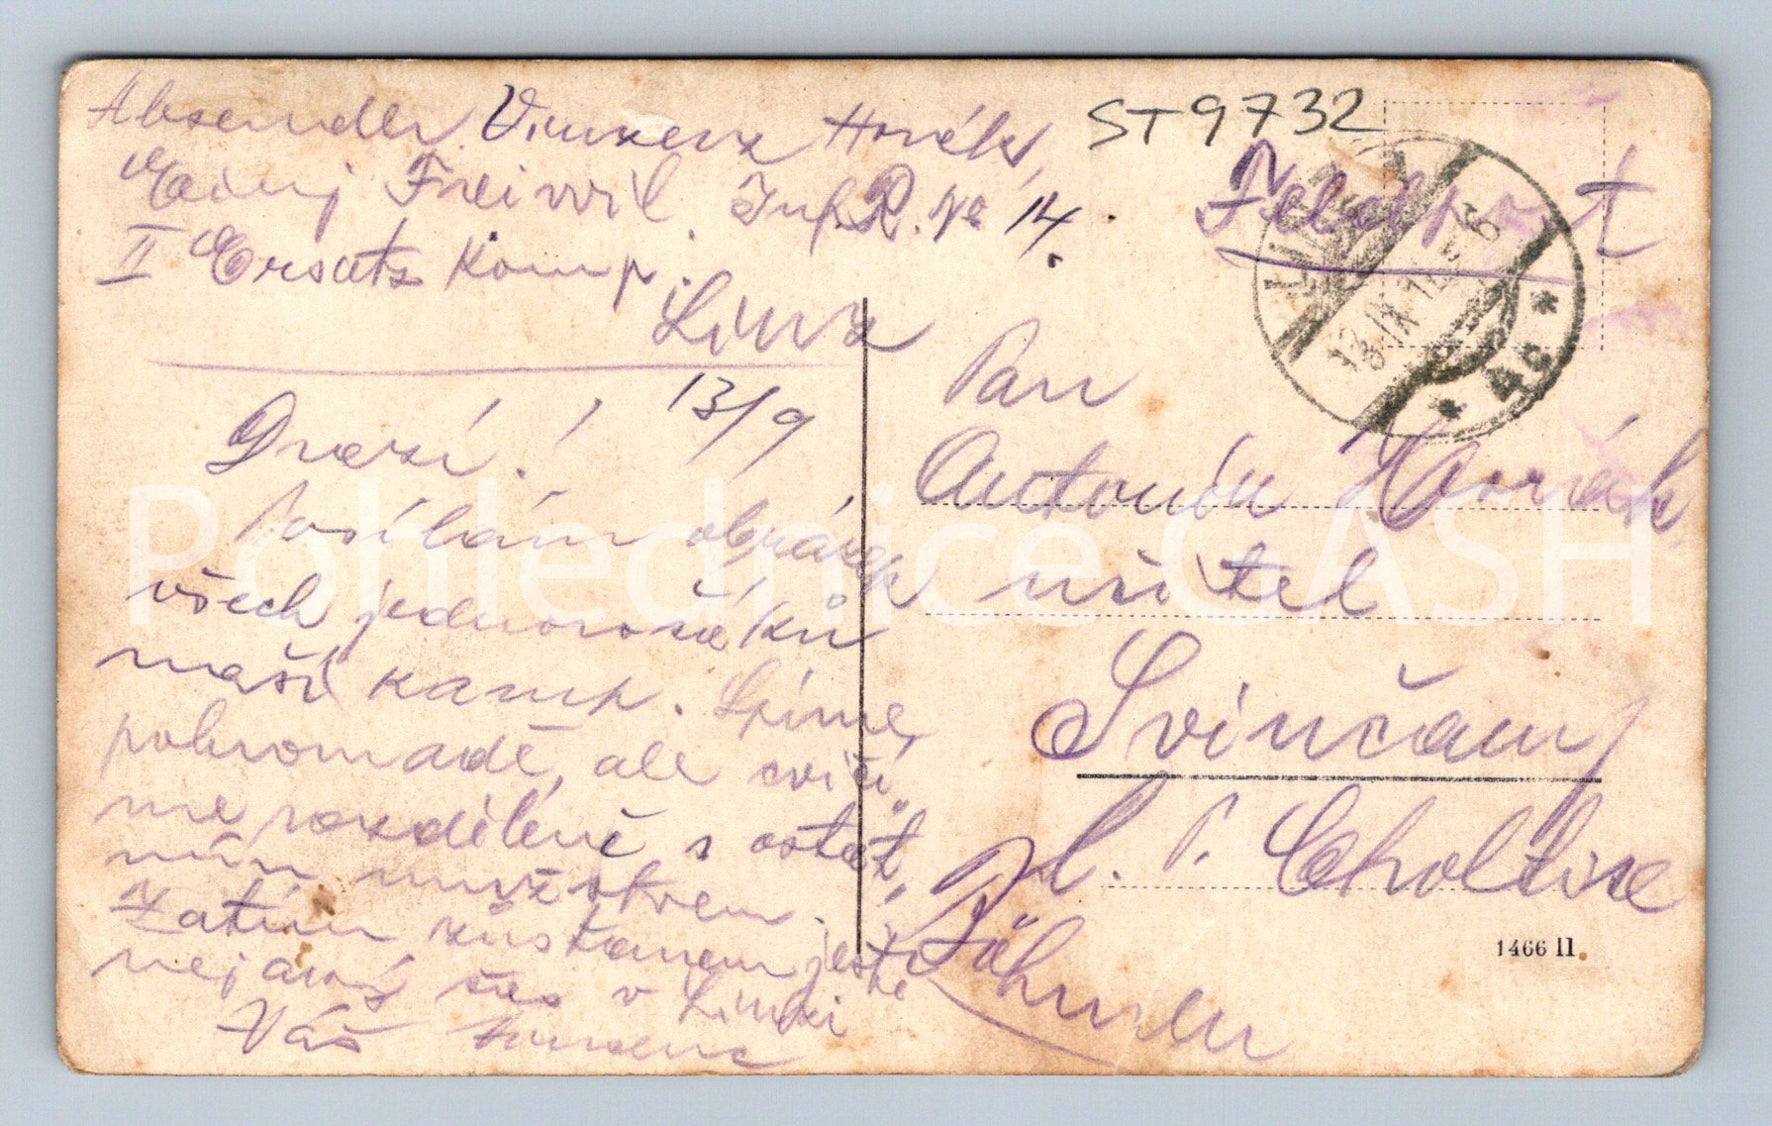 Absender Vinzenz Horák,
ST9732
Einj Freiwil. Inf. R. No 14.
Feldpost
II Ersatz Komp.
Linz
13/9
Drazí!
Posílám obrázek
všech jednoročáků
naší kamp. Spíme
pohromadě, ale cvičí„
me rozdělené s ostat„
ním mužstvem.
Zatím zůstanem ještě
nejaký čas v Linci
Váš
Pan
Antonín Horák
učitel
Svinčany
p. Choltice
Böhmen
1466 II.
Pohlednice GASH